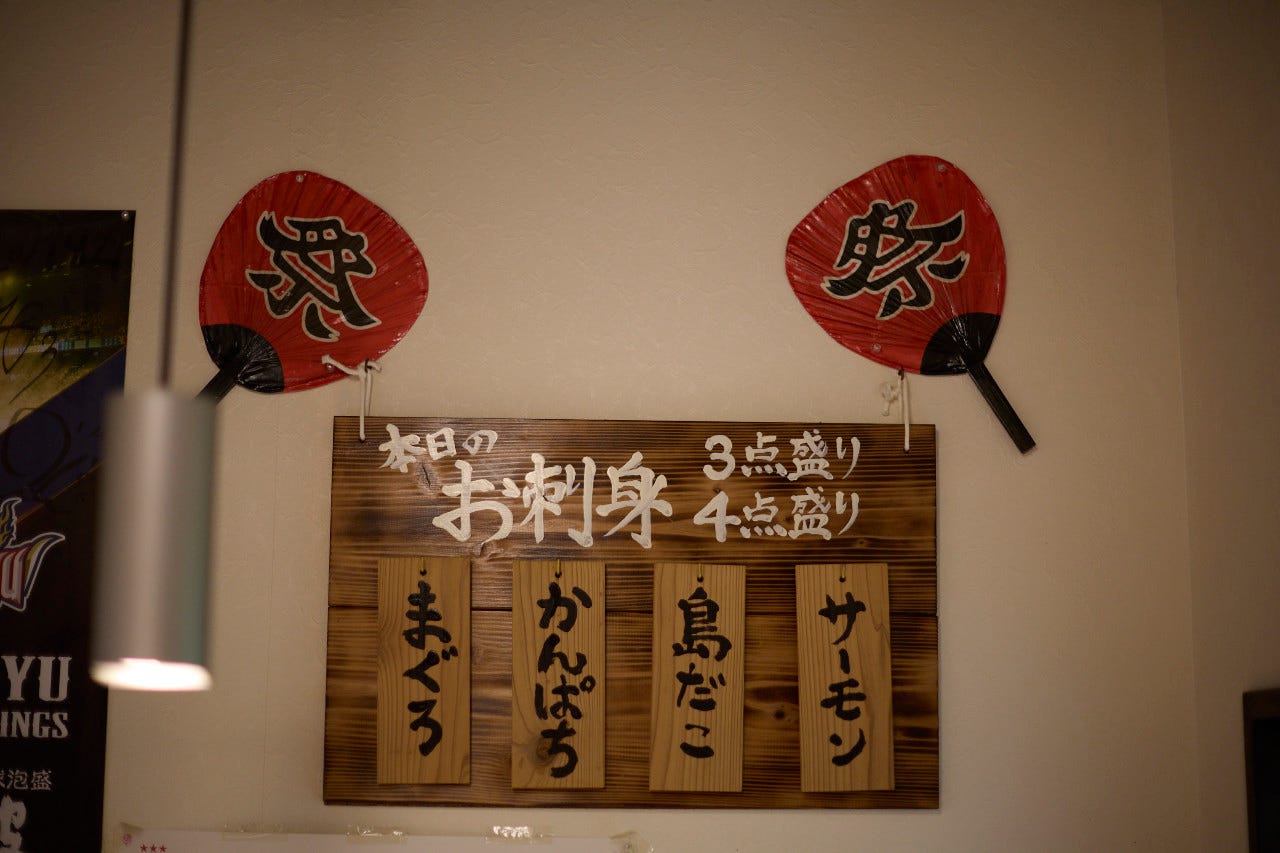 祭
祭
本日の
お刺身
3点盛り
4点盛り
まぐろ
かんぱち
島だこ
サーモン
YU
INGS
泡盛